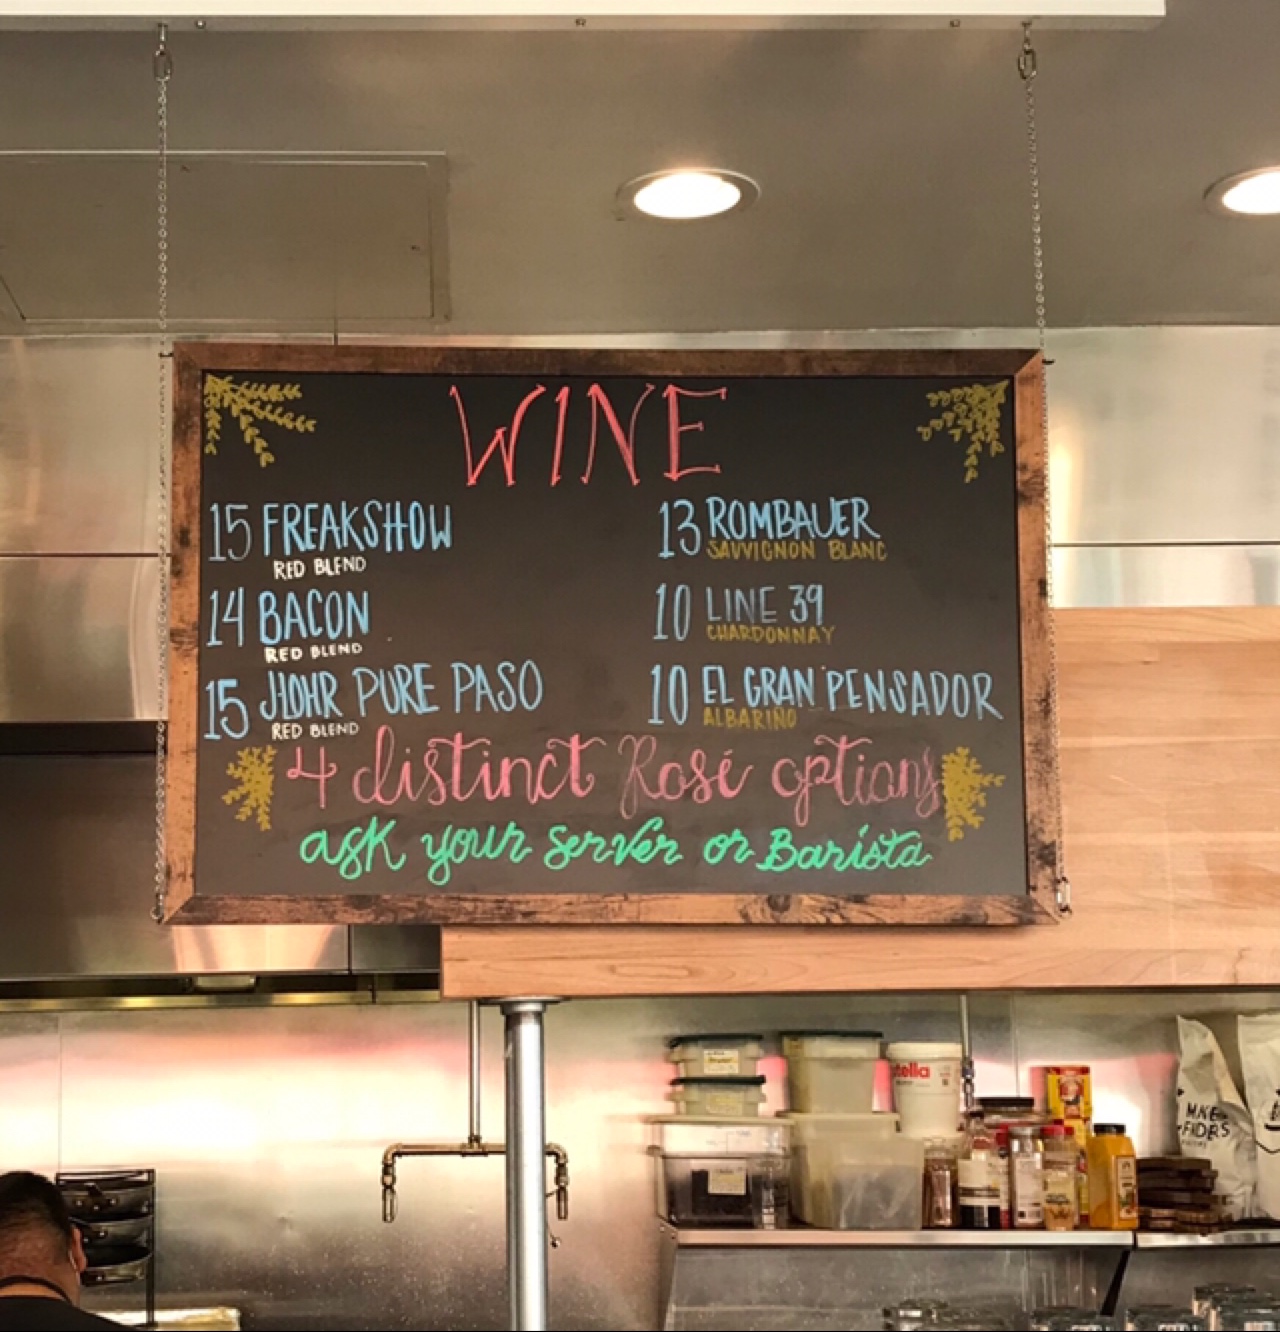 WINE
15 FREAKSHOW
RED BLEND
14 BACON
RED BLEND
15 J.LOHR PURE PASO
RED BLEND
13 ROMBAUER
SAUVIGNON BLANC
10 LINE 39
CHARDONNAY
10 EL GRAN PENSADOR
ALBARIÑO
4 distinct Rosé options
ask your server or Barista
tella